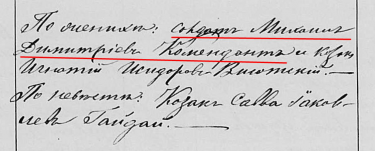 По женихѣ: солдатъ Михаилъ
Димитріевъ Комендантъ и козакъ
Игнатій Исидоровъ Высотскій.
По невѣстѣ: Козакъ Савва Іаков-
левъ Гайдай.